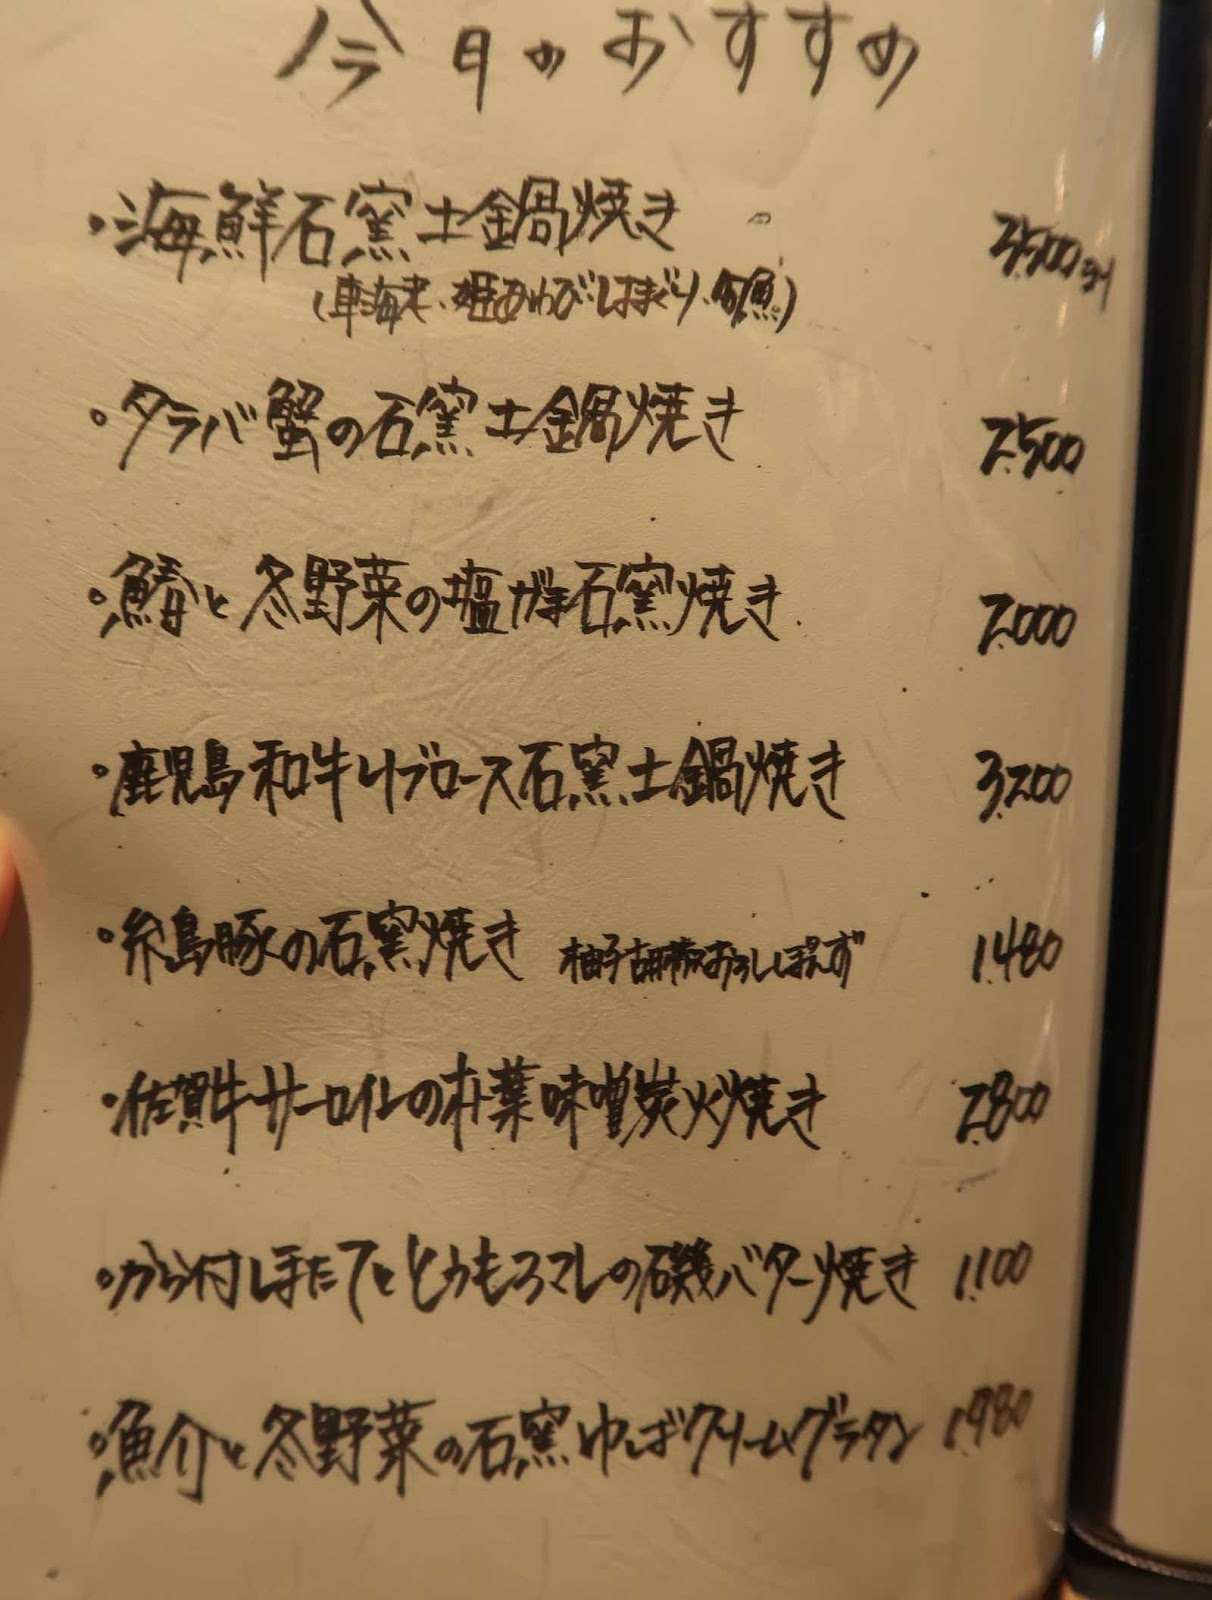 今日のおすすめ
・海鮮石窯土鍋焼き 3,500より
(車海老、姫あわび、はまぐり、旬魚)
・タラバ蟹の石窯土鍋焼き 2,500
・鰆と冬野菜の塩ガ釜石窯焼き 2,000
・鹿児島和牛リブロース石窯土鍋焼き 3,200
・糸島豚の石窯焼き 柚子胡椒おろしぽんず 1,480
・佐賀牛サーロインの朴葉味噌炭火焼き 2,800
・から付しほたてととうもろこしの磯バター焼き 1,100
・魚介と冬野菜の石窯ゆばクリームグラタン 1,980